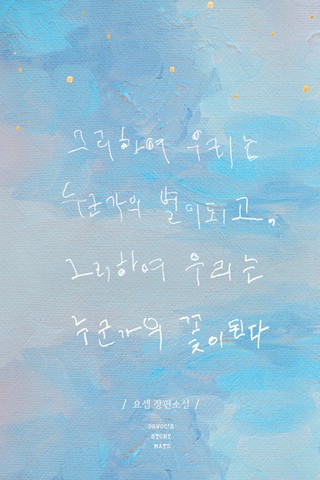 그리하여 우리는
누군가의 별이되고,
그리하여 우리는
누군가의 꽃이된다
/ 요셉 장편소설 /
STORY
MATE